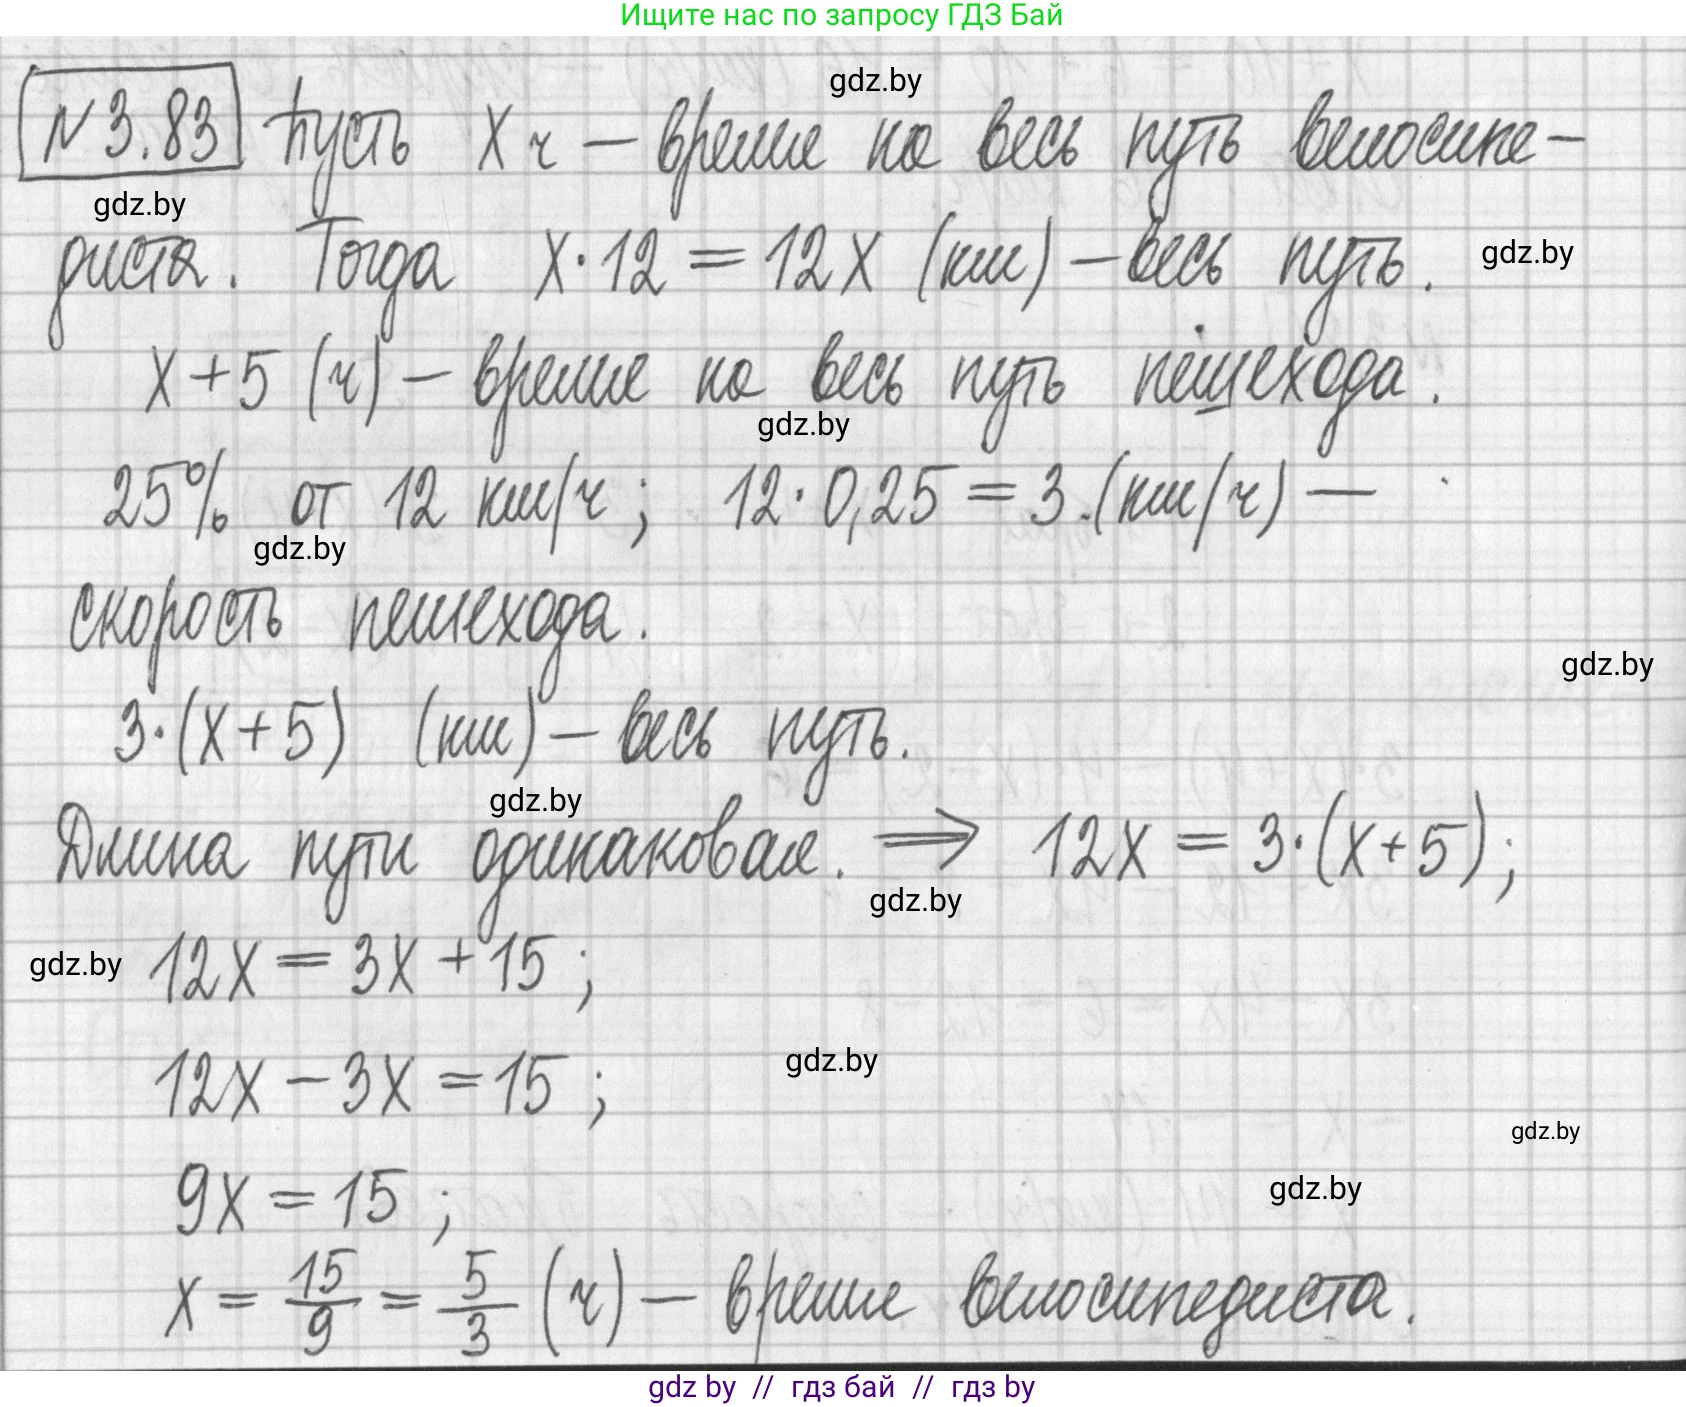 Ищите нас по запросу ГДЗ Бай
gdz.by
N 3.83 Пусть x ч – время на весь путь велосипе-
gdz.by
диста. Тогда x·12 = 12x (км) – весь путь.
gdz.by
x+5 (ч) – время на весь путь пешехода.
gdz.by
25% от 12 км/ч; 12·0,25 = 3 (км/ч) –
gdz.by
скорость пешехода.
gdz.by
3·(x+5) (км) – весь путь.
gdz.by
Длина пути одинаковая. ⟹ 12x = 3·(x+5);
gdz.by
gdz.by
12x = 3x + 15;
gdz.by
12x – 3x = 15;
gdz.by
gdz.by
9x = 15;
x = 15/9 = 5/3 (ч) – время велосипедиста.
gdz by // гдз бай // гдз by